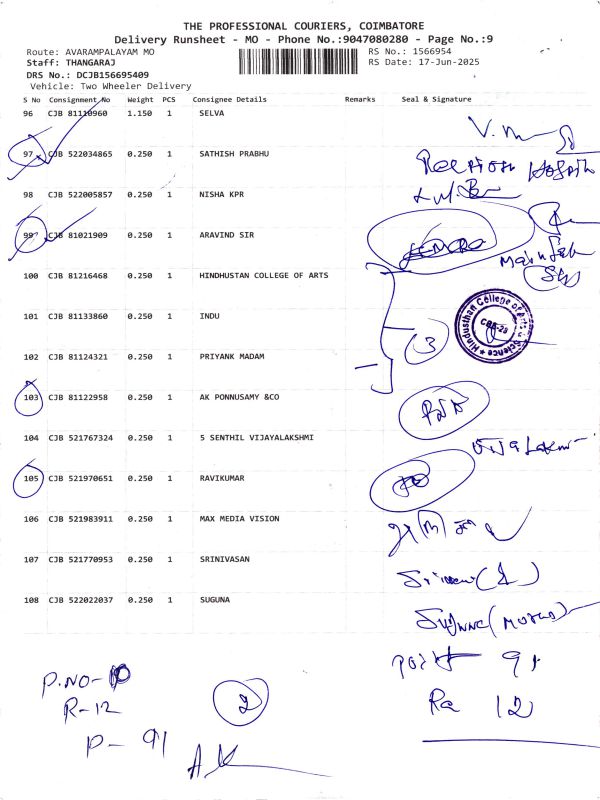 THE PROFESSIONAL COURIERS, COIMBATORE
Delivery Runsheet - MO - Phone No.:9047080280 - Page No.:9
Route: AVARAMPALAYAM MO RS No.: 1566954
Staff: THANGARAJ RS Date: 17-Jun-2025
DRS No.: DCJB156695409
Vehicle: Two Wheeler Delivery
S No Consignment No Weight PCS Consignee Details Remarks Seal & Signature
96 CJB 81110960 1.150 1 SELVA
97 CJB 522034865 0.250 1 SATHISH PRABHU
98 CJB 522005857 0.250 1 NISHA KPR
99 CJB 81021909 0.250 1 ARAVIND SIR
100 CJB 81216468 0.250 1 HINDHUSTAN COLLEGE OF ARTS
Hindusthan College of Arts & Science CBE-28
101 CJB 81133860 0.250 1 INDU
102 CJB 81124321 0.250 1 PRIYANK MADAM
3
103 CJB 81122958 0.250 1 AK PONNUSAMY &CO
104 CJB 521767324 0.250 1 S SENTHIL VIJAYALAKSHMI
105 CJB 521970651 0.250 1 RAVIKUMAR
106 CJB 521983911 0.250 1 MAX MEDIA VISION
107 CJB 521770953 0.250 1 SRINIVASAN
108 CJB 522022037 0.250 1 SUGUNA
91
Ra 12
P.NO-
R-12
P- 91
2